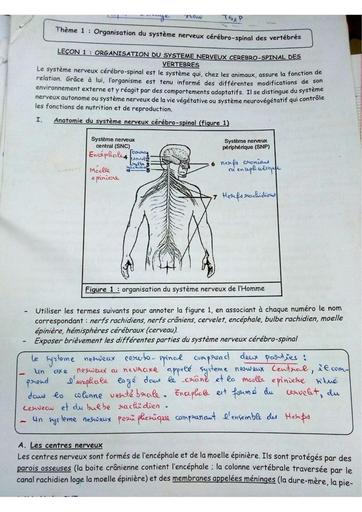 TS2P
Thème 1 : Organisation du système nerveux cérébro-spinal des vertébrés
LEÇON 1 : ORGANISATION DU SYSTEME NERVEUX CEREBRO-SPINAL DES
VERTEBRES
Le système nerveux cérébro-spinal est le système qui, chez les animaux, assure la fonction de
relation. Grâce à lui, l'organisme est tenu informé des différentes modifications de son
environnement externe et y réagit par des comportements adaptatifs. Il se distingue du système
nerveux autonome ou système nerveux de la vie végétative ou système neurovégétatif qui contrôle
les fonctions de nutrition et de reproduction.
I. Anatomie du système nerveux cérébro-spinal (figure 1)
Système nerveux
central (SNC)
Encéphale
Moelle
épinière
Système nerveux
périphérique (SNP)
nerfs crâniens
Nerfs rachidiens
Figure 1 : organisation du système nerveux de l'Homme
- Utiliser les termes suivants pour annoter la figure 1, en associant à chaque numéro le nom
correspondant : nerfs rachidiens, nerfs crâniens, cervelet, encéphale, bulbe rachidien, moelle
épinière, hémisphères cérébraux (cerveau).
- Exposer brièvement les différentes parties du système nerveux cérébro-spinal
Le système nerveux cerebo-spinal comprend deux parties :
- un axe nerveux ou nevraxe appelé système nerveux Central, il com-
prend l'encéphale logé dans le crâne et la moelle epiniere situé
dans la colonne vertébrale. Encéphale est formé du cervelet, du
cerveau et du bulbe rachidien.
- Un système nerveux périphérique comprenant l'ensemble des Nerfs
A. Les centres nerveux
Les centres nerveux sont formés de l'encéphale et de la moelle épinière. Ils sont protégés par des
parois osseuses (la boite crânienne contient l'encéphale ; la colonne vertébrale traversée par le
canal rachidien loge la moelle épinière) et des membranes appelées méninges (la dure-mère, la pie-